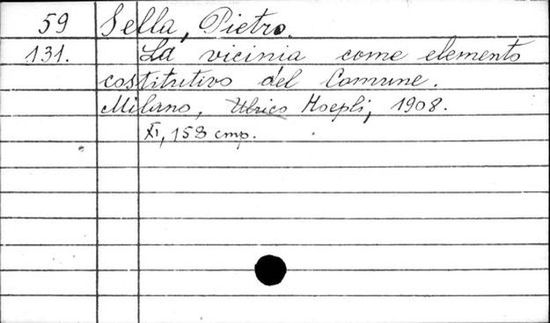 59 Sella, Pietro.
131. La vicinia come elemento
costitutivo del Comune.
Milano, Ulrico Hoepli, 1908.
XI, 158 cmp.